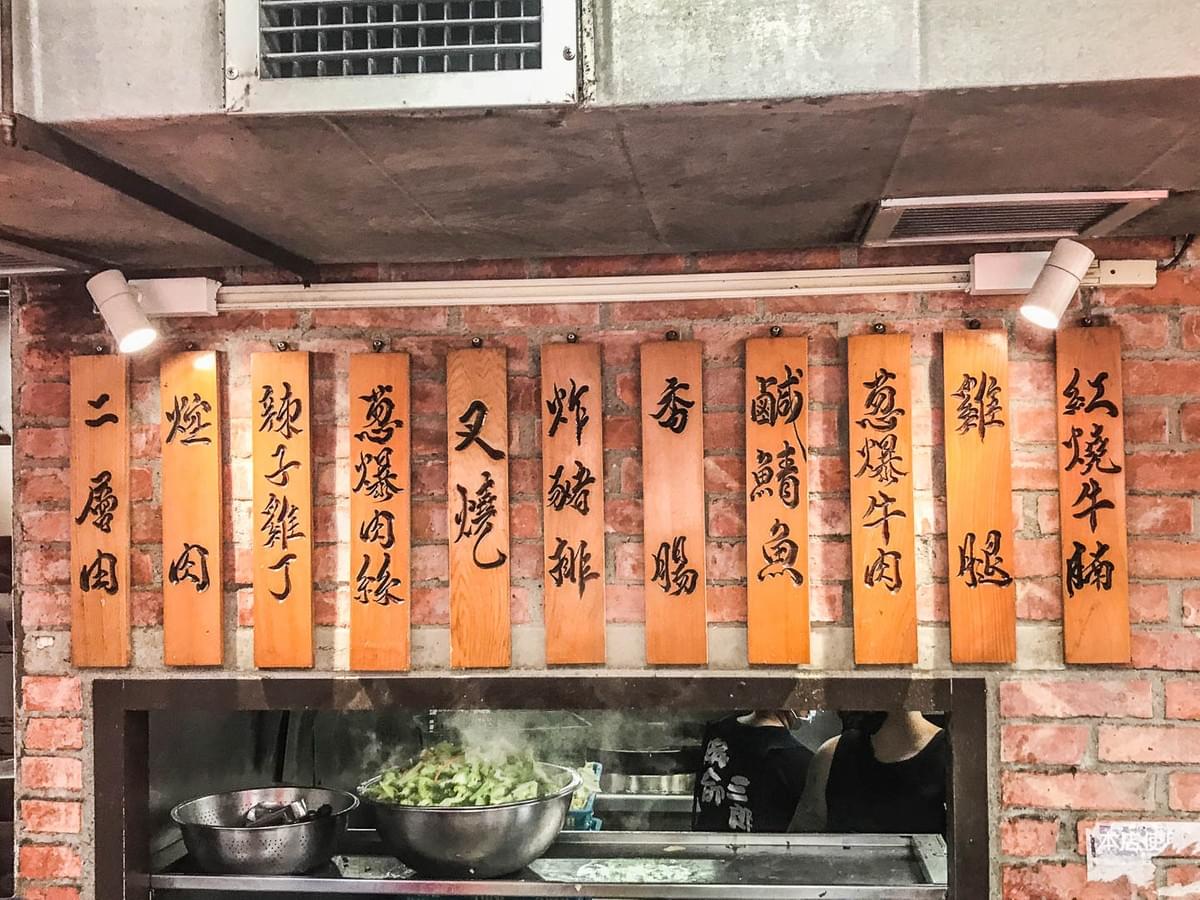 紅燒牛腩
雞腿
葱爆牛肉
鹹鯖魚
香腸
炸豬排
叉燒
葱爆肉絲
辣子雞丁
焢肉
二層肉
命
三郎
本店